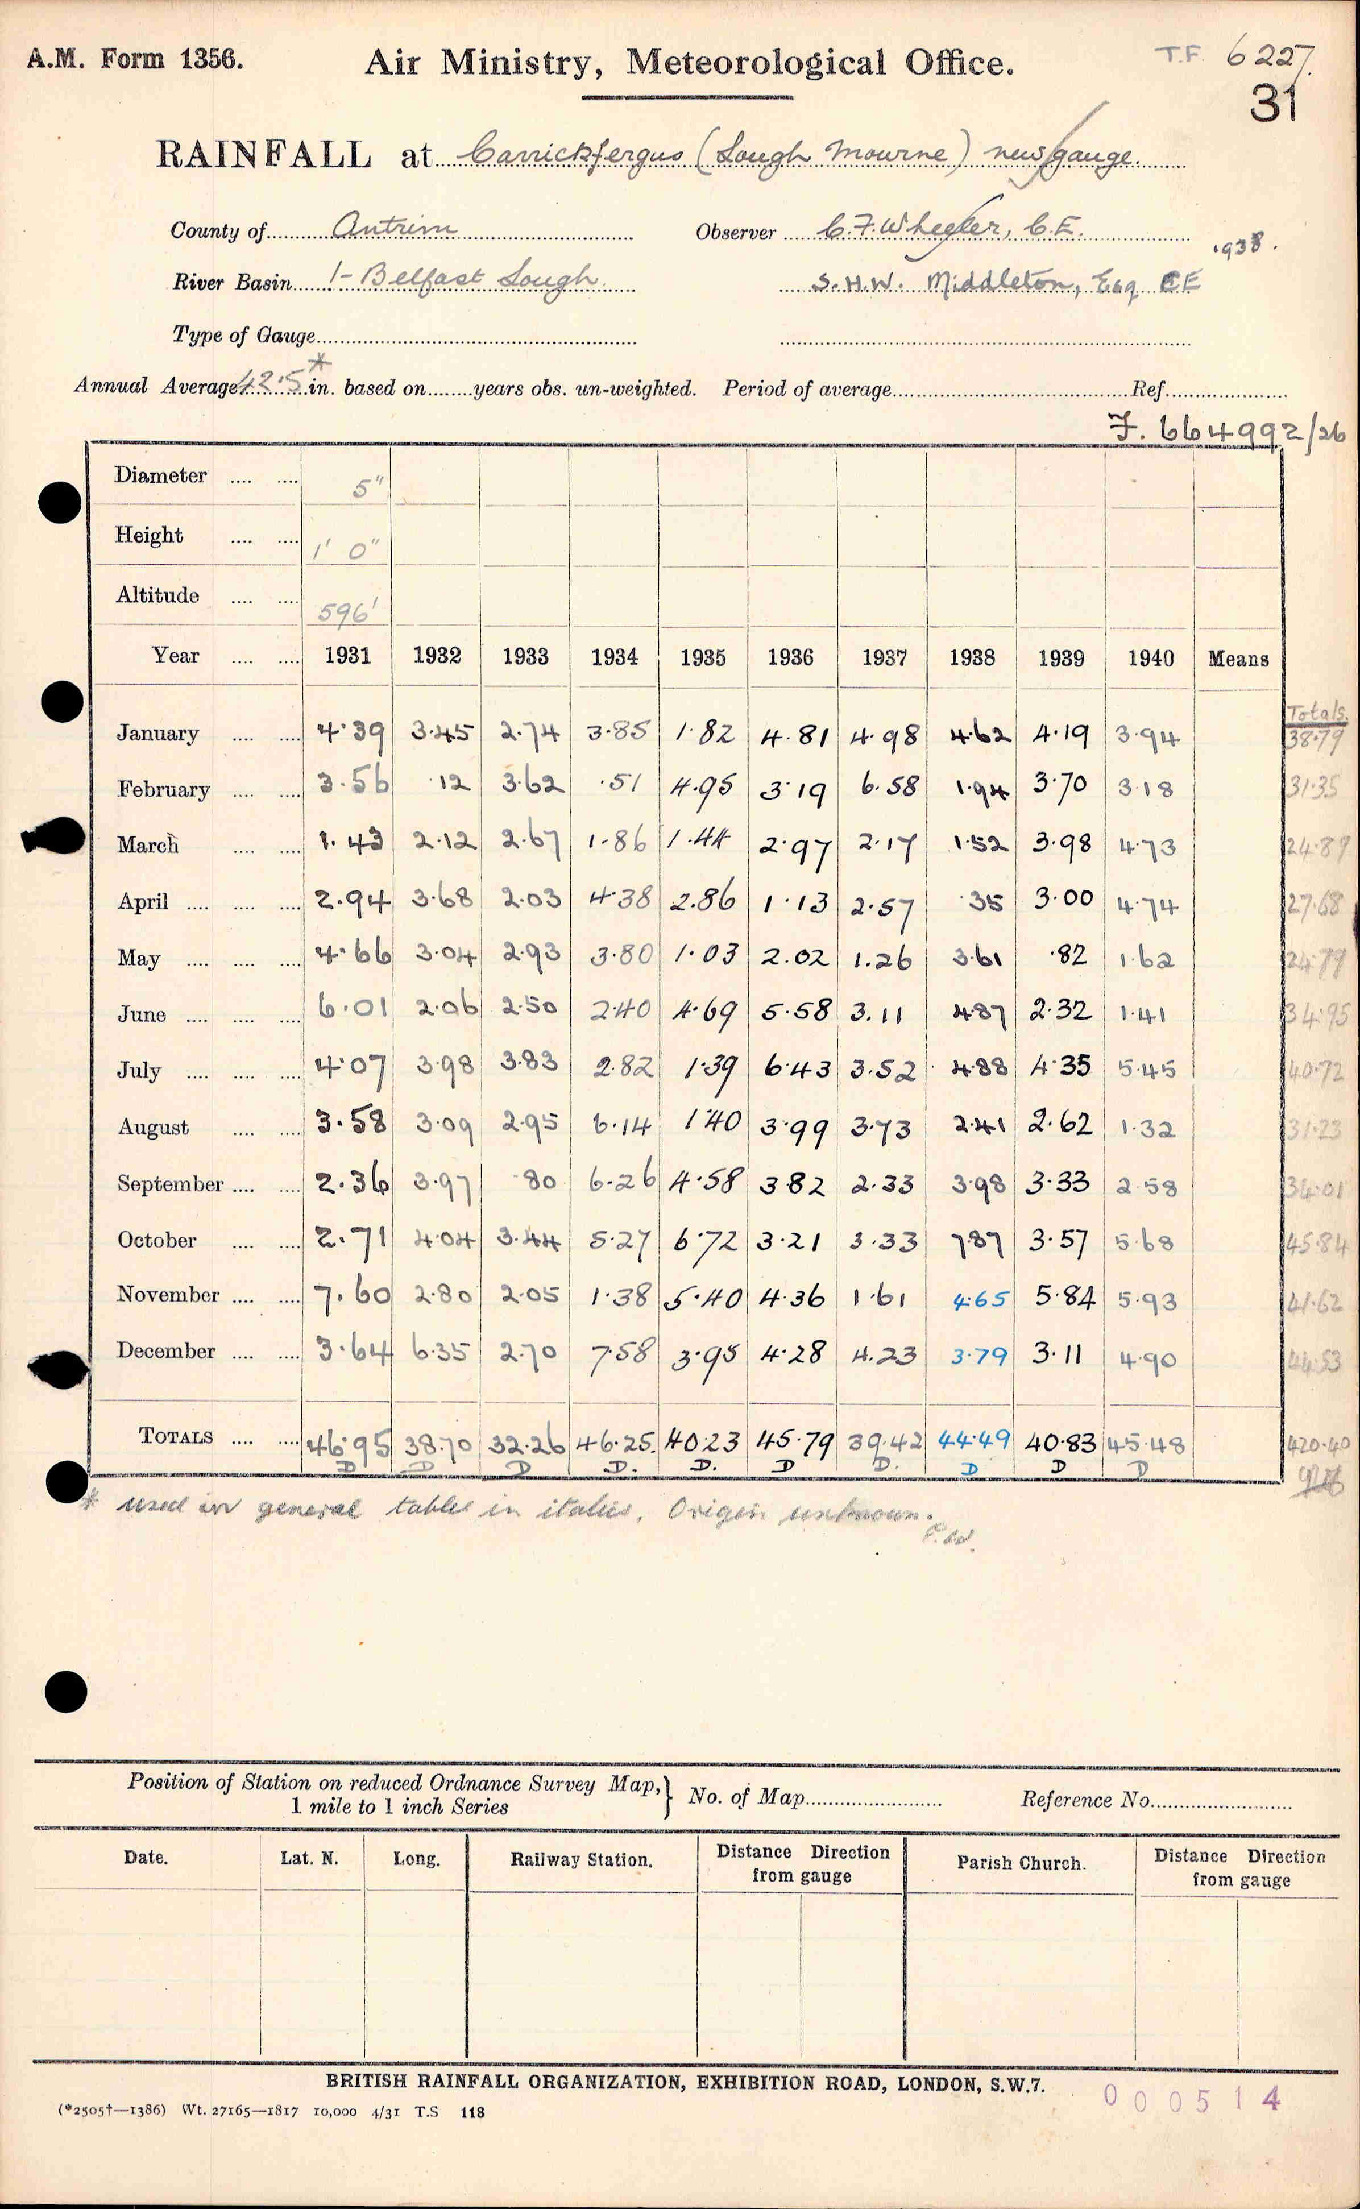 A.M. Form 1356. Air Ministry, Meteorological Office. T.F. 6227.
31
RAINFALL at Carrickfergus (Lough Mourne) new gauge.
County of Antrim Observer C.F. Wheeler, C.E.
1938.
River Basin 1- Belfast Lough. S.H.W. Middleton, Esq CE
Type of Gauge
Annual Average 42.5* in. based on years obs. un-weighted. Period of average Ref.
F. 664992/26
Diameter 5"
Height 1' 0"
Altitude 596'
Year 1931 1932 1933 1934 1935 1936 1937 1938 1939 1940 Means
Totals.
January 4.39 3.45 2.74 3.85 1.82 4.81 4.98 4.62 4.19 3.94 38.79
February 3.56 .12 3.62 .51 4.95 3.19 6.58 1.94 3.70 3.18 31.35
March 1.43 2.12 2.67 1.86 1.44 2.97 2.17 1.52 3.98 4.73 24.89
April 2.94 3.68 2.03 4.38 2.86 1.13 2.57 .35 3.00 4.74 27.68
May 4.66 3.04 2.93 3.80 1.03 2.02 1.26 3.61 .82 1.62 24.79
June 6.01 2.06 2.50 2.40 4.69 5.58 3.11 4.87 2.32 1.41 34.95
July 4.07 3.98 3.83 2.82 1.39 6.43 3.52 4.88 4.35 5.45 40.72
August 3.58 3.09 2.95 6.14 1.40 3.99 3.73 2.41 2.62 1.32 31.23
September 2.36 3.97 .80 6.26 4.58 3.82 2.33 3.98 3.33 2.58 34.01
October 2.71 4.04 3.44 5.27 6.72 3.21 3.33 7.87 3.57 5.68 45.84
November 7.60 2.80 2.05 1.38 5.40 4.36 1.61 4.65 5.84 5.93 41.62
December 3.64 6.35 2.70 7.58 3.95 4.28 4.23 3.79 3.11 4.90 44.53
TOTALS 46.95 38.70 32.26 46.25. 40.23 45.79 39.42 44.49 40.83 45.48 420.40
D D D D. D. D D. D D D
* used in general table in italics. Origin unknown.
P.W.
Position of Station on reduced Ordnance Survey Map, 1 mile to 1 inch Series } No. of Map Reference No.
Date. Lat. N. Long. Railway Station. Distance Direction from gauge Parish Church. Distance Direction from gauge
BRITISH RAINFALL ORGANIZATION, EXHIBITION ROAD, LONDON, S.W.7.
000514
(*2505†—1386) Wt. 27165—1817 10,000 4/31 T.S 118